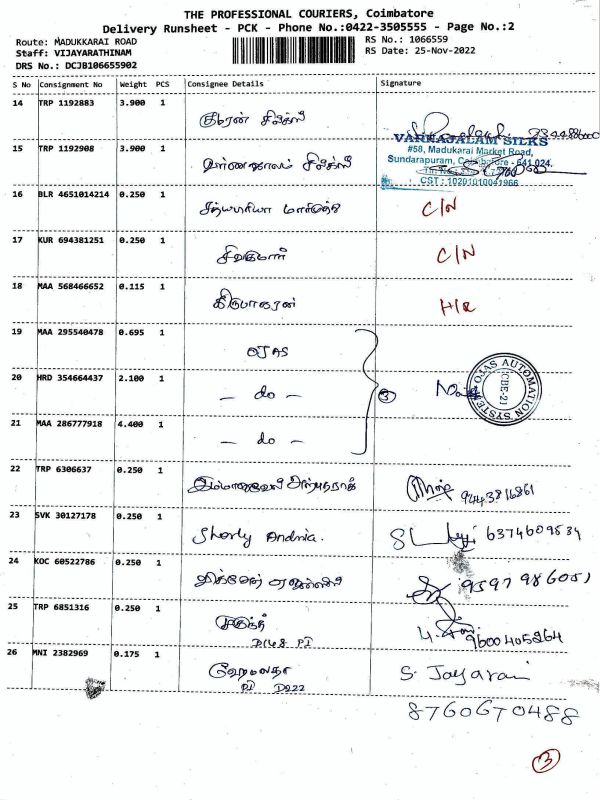 THE PROFESSIONAL COURIERS, Coimbatore
Delivery Runsheet - PCK - Phone No.:0422-3505555 - Page No.:2
Route: MADUKKARAI ROAD
RS No.: 1066559
Staff: VIJAYARATHINAM
RS Date: 25-Nov-2022
DRS No.: DCJB106655902
S No Consignment No Weight PCS Consignee Details Signature
14 TRP 1192883 3.900 1 குமரன் சில்க்ஸ்
15 TRP 1192908 3.900 1 சில்க்ஸ்
VARNAJALAM SILKS
#58, Madukarai Market Road,
Sundarapuram, Coimbatore - 641 024.
CST : 10201010041966
16 BLR 4651014214 0.250 1 C/N
17 KUR 694381251 0.250 1 சிவகுமார் C/N
18 MAA 568466652 0.115 1 கிருபாகரன்
19 MAA 295540478 0.695 1 OJAS
20 HRD 354664437 2.100 1 - do - 3
OJAS AUTOMATION SYSTEM
CBE-21
21 MAA 286777918 4.400 1 - do -
22 TRP 6306637 0.250 1 9443816861
23 SVK 30127178 0.250 1 Sherly Andria. 6374609534
24 KOC 60522786 0.250 1 9597986051
25 TRP 6851316 0.250 1 9600405264
26 MNI 2382969 0.175 1 ஹேமலதா S. Jayarani
PI D222
8760670488
3